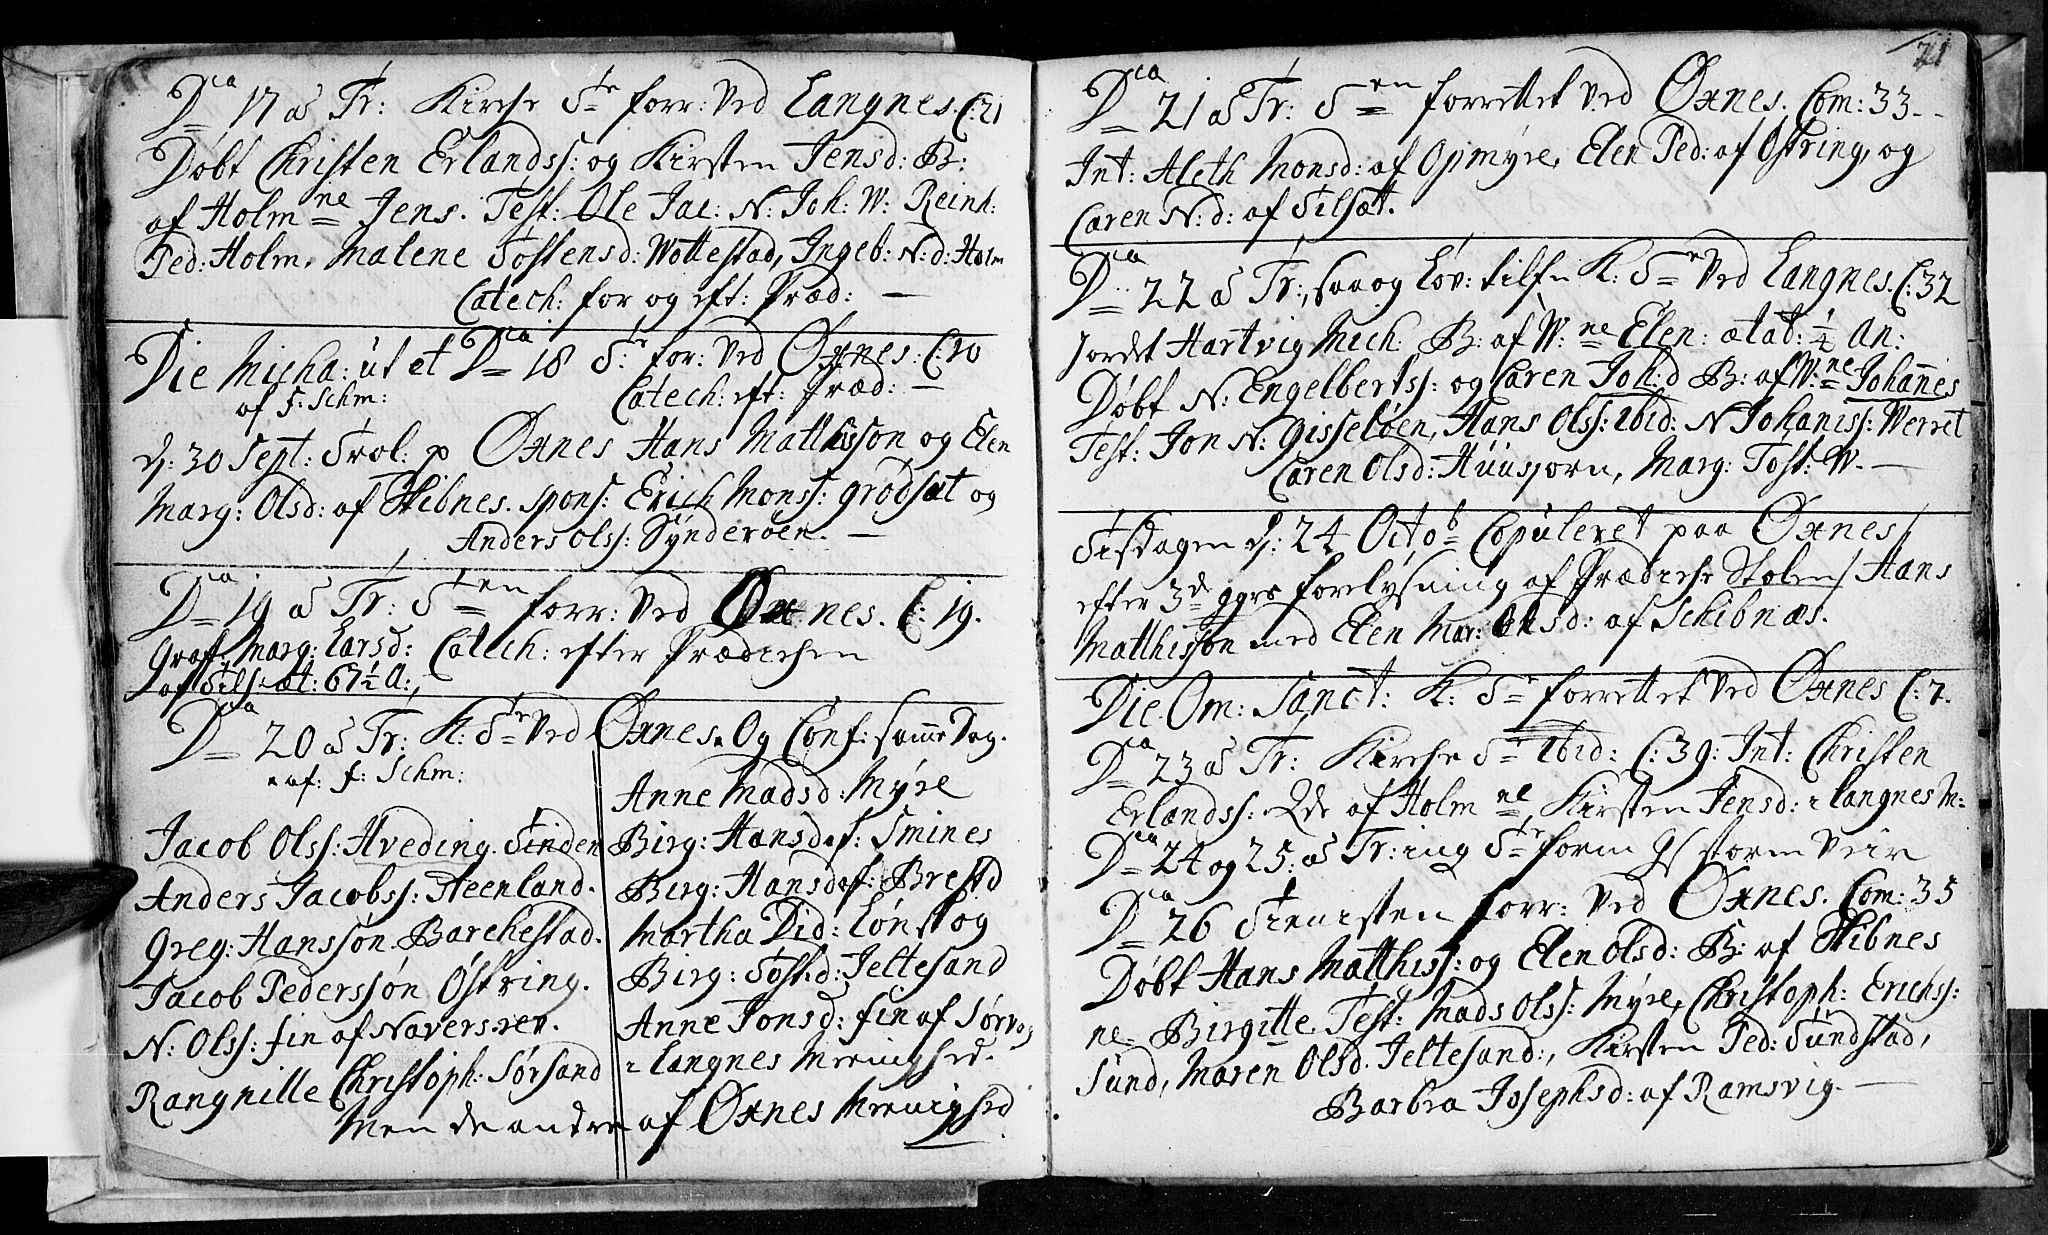 Dca 17 a Tr: Kirche Ste forr: ved Langnes. C: 21
Døbt Christen Erlandss: og Kirsten Jensd: B:
af Holm ne Jens. Test: Ole Jac: N: Joh: W: Reinh:
Ped: Holm, Malene Tostensd: Wottestad, Ingeb: N: d: Holm
Catech: for og eft: Præd: —
Die Micha: ut et Dca 18 St: for: ved Øxnes: C: 20
af F: Schm: Catech: eft: Præd: —
d: 30 Sept: Trol: p Øxnes Hans Mathisson og Elen
Marg: Olsd: af Skibnes. Spons: Erich Monss: Grodsæt og
Anders Olss: Sÿnderøen. —
Dca 19 a Tr: Sten forr: ved Øxnes. C: 19.
Graf: Marg: Larsd: Catech: efter Prædichen
af Tils: æt: 67½ A:,
Dca 20 a Tr: K: Ste ved Øxnes. Og Conf: samme Dag.
af: F: Schm:
Jacob Olss: Hveding Tinden
Anders Jacobss: Steenland.
Greg: Hanssøn Barchestad.
Jacob Pederssøn Østring.
N: Olss: fin af Naversnev.
Rangnille Christoph: Sørsand
Anne Madsd: Myre
Birg: Hansd af: Smines
Birg: Hansd af: Brestd
Martha Did: Lønskog
Birg: Tostd: Jeltesand
Anne Jonsd: fin af Sørvog
i Langnes Meenighed.
Men de andre af Øxnes Meenighed
71
Dca 21 a Tr: Sten forrettet ved Øxnes. Com: 33--
Int: Aleth Monsd: af Opmyre, Elen Ped: af Østring, og
Caren N: d: af Tilsæt.
Dca 22 a Tr:, saa og Løv: tilfn K: Ste ved Langnes. C: 32
Jordet Hartvig Mich: B: af W: ne Elen: ætat: ½ An:
Døbt N: Engelbertss: og Caren Joh: d B: af W: ne Johannes
Test: Jon N: Gisseløen, Hans Olss: ibid: N Johaniss: Werret
Caren Olsd: Huusjorn, Marg: Tost: W. —
Tisdagen d: 24 Octob Copuleret paa Øxnes/
efter 3de ggrs forelysning af Prædiche Stolen/ Hans
Matthisson med Elen Mar: Olsd: af Schibnæs.
Die Om: Sanct: K: Ste forrettet ved Øxnes C: 7.
Dca 23 a Tr: Kirche Ste ibid: C: 39: Int: Christen
Erlandss: Qde af Holm ne, Kirsten Jensd: i Langnes M:
Dca 24 og 25: a Tr: ing Ste form storm veir
Dca 26 Tienisten forr: ved Øxnes. Com: 35
Døbt Hans Matthiss: og Elen Olsd: B: af Skibnes
ne: Birgitte. Test: Mads Olss: Myre, Christoph: Erichss:
Sund, Maren Olsd. Jeltesand:, Kirsten Ped: Sundstad,
Barbra Josephsd: af Ramsvig. —